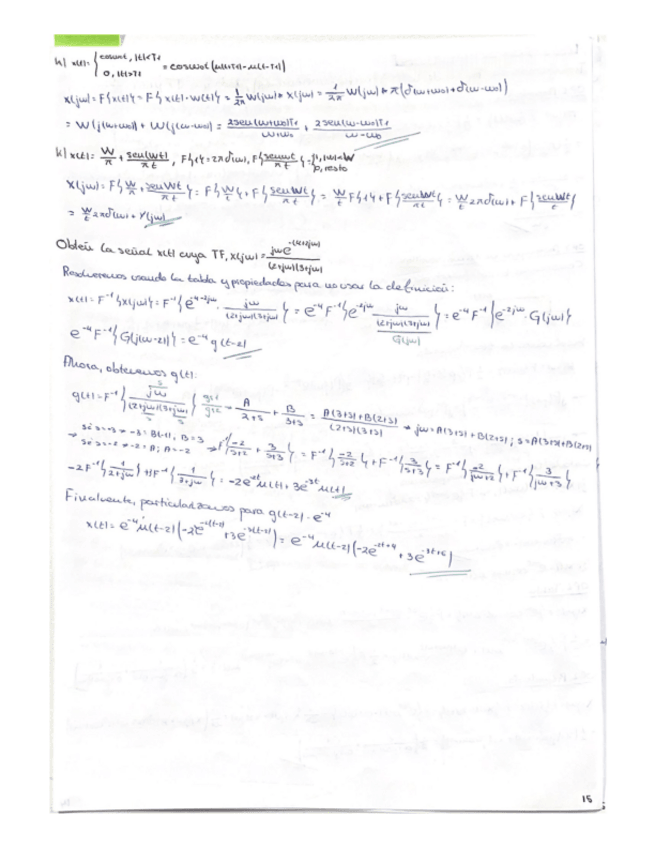 h) x(t)= { cosw0t, |t|<T1 = cosw0t (u(t+T1)-u(t-T1))
0, |t|>T1
X(jw) = F{x(t)} = F{x(t)·w(t)} = 1/2π W(jw) * X(jw) = 1/2π W(jw) * π(δ(w+w0)+δ(w-w0))
= W(j(w+w0)) + W(j(w-w0)) = 2sen(w+w0)T1 / w+w0 + 2sen(w-w0)T1 / w-w0
k) x(t) = W/π + sen(wt)/πt , F{1} = 2πδ(w), F{senwt/πt} = {1, |w|<W
0, resto
X(jw) = F{W/π + senWt/πt} = F{W/t} + F{senWt/πt} = W/t F{1} + F{senWt/πt} = W/t 2πδ(w) + F{senWt/πt}
= W/t 2πδ(w) + Y(jw)
Obtén la señal x(t) cuya TF, X(jw) = jwe^-(4+2jw) / (2+jw)(3+jw)
Resolveremos usando la tabla y propiedades para no usar la definición:
x(t) = F^-1{X(jw)} = F^-1{e^-4-2jw · jw/(2+jw)(3+jw)} = e^-4 F^-1{e^-2jw jw/(2+jw)(3+jw)} = e^-4 F^-1{e^-2jw · G(jw)}
G(jw)
e^-4 F^-1{G(j(w-2))} = e^-4 g(t-2)
Ahora, obtenemos g(t):
g(t) = F^-1{jw/(2+jw)(3+jw)} = A/2+s + B/3+s = A(3+s)+B(2+s) / (2+s)(3+s) → jw = A(3+s)+B(2+s) ; s = A(3+s)+B(2+s)
→ Si s=-3 → -3 = B(-1), B=3
→ Si s=-2 → -2 = A; A=-2 → F^-1{-2/s+2 + 3/s+3} = F^-1{-2/s+2} + F^-1{3/s+3} = F^-1{-2/jw+2} + F^-1{3/jw+3}
-2F^-1{1/2+jw} + F^-1{1/3+jw} = -2e^-2t u(t) + 3e^-3t u(t)
Finalmente, particularizamos para g(t-2)·e^-4
x(t) = e^-4 u(t-2) (-2e^-2(t-2) + 3e^-3(t-2)) = e^-4 u(t-2) (-2e^-2t+4 + 3e^-3t+6)
15